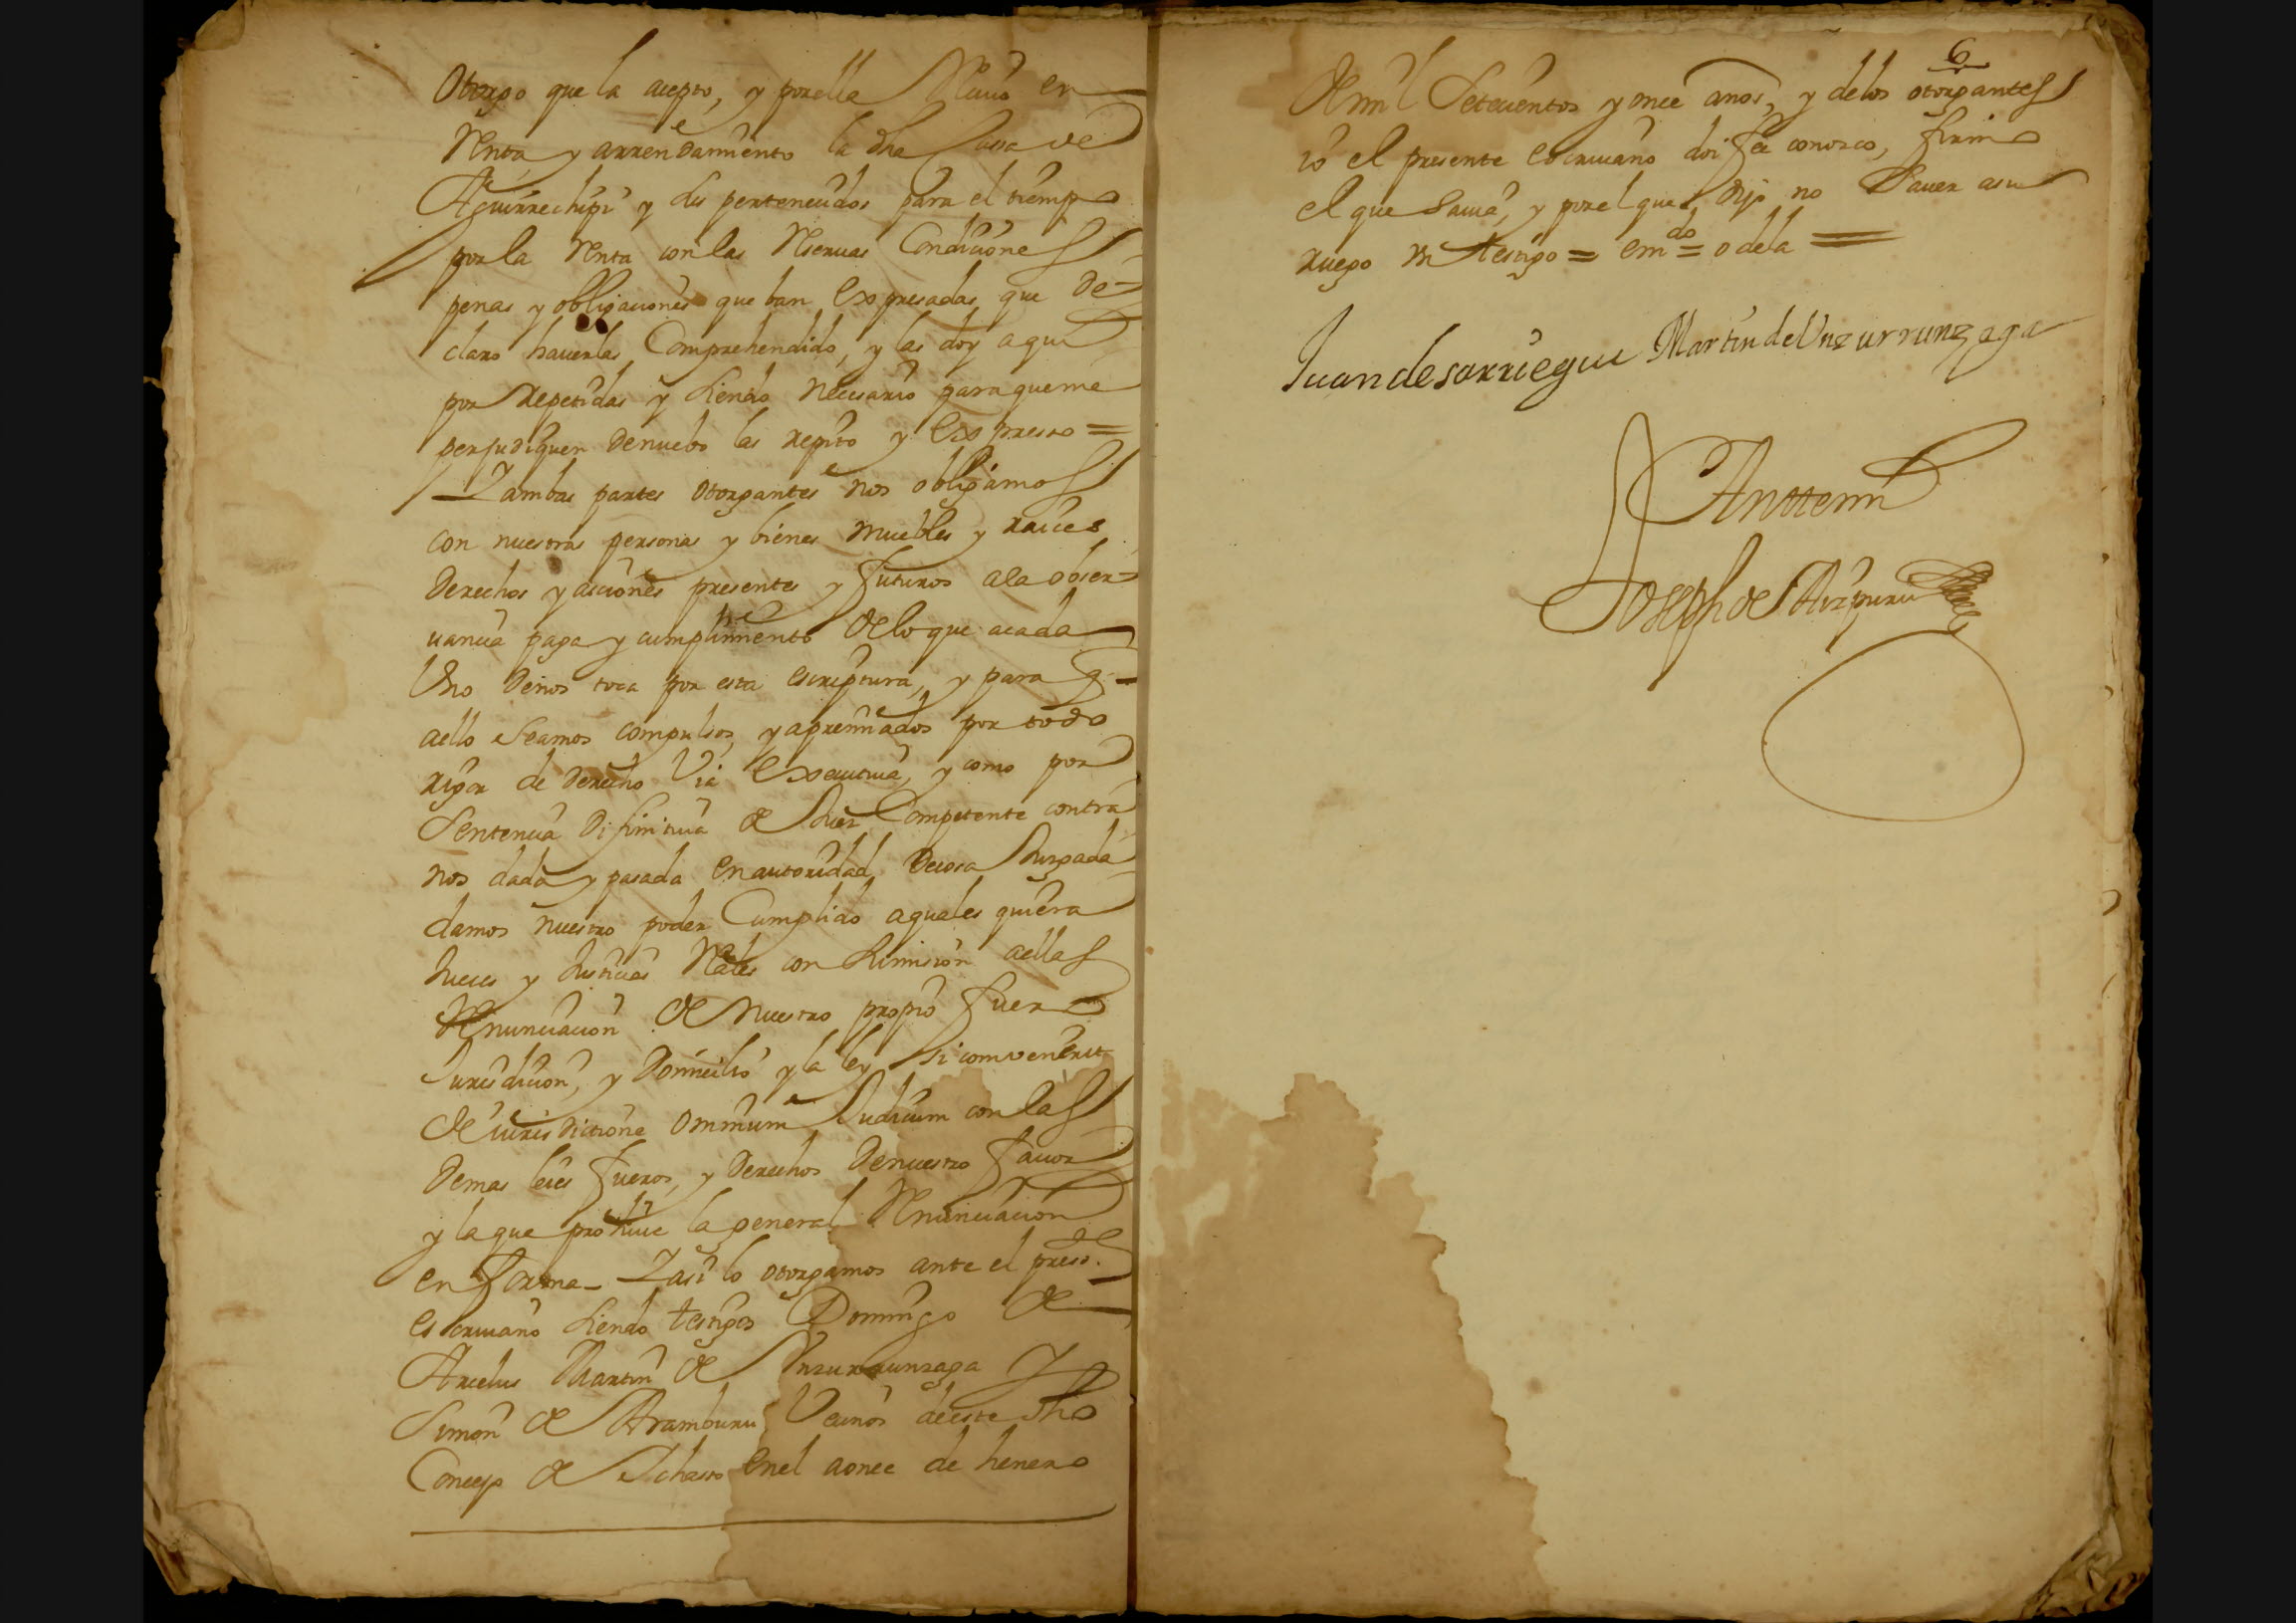 otorgo que la acepto, y por ella Reciuo en
Renta y arrendamiento la dha Casa de
Aguirrechipi y sus pertenecidos para el tiempo
por la Renta con las Reseruas Condiciones
penas y obligaciones que ban expresadas que de=
claro hauerlas Comprehendido, y las doy aqui
por repetidas y siendo necesario para que me
perjudiquen de nuebo las repito y expreso =
Y ambas partes otorgantes nos obligamos
con nuestras personas y bienes muebles y raices
derechos y acciones presentes y futuros a la obser=
uancia paga y cumplimiento de lo que a cada
Uno de nos toca por esta escriptura, y para q.
a ello seamos compulsos, y apremiados por todo
rigor de derecho Via executiua, y como por
Sentencia difinitiua de Juez Competente contra
nos dada y pasada en autoridad de cosa Juzgada
damos nuestro poder Cumplido a quales quiera
Jueces y Justicias Rales con sumision a ellas
Renunciacion de nuestro propio fuero
Jurisdicion, y Domicilio y la ley si convenerit
de iurisdictione omnium Judicum con las
demas leies fueros, y derechos de nuestro fauor
y la que prohiue la general Renunciacion
en forma - Y asi lo otorgamos ante el preste.
escriuano siendo testigos Domingo de
Arcelus Martin de Unzurrunzaga Y
Simon de Aramburu Vecinos de este dho
Concejo de en el a once de henero
6
de mil Setecientos y once años, y de los otorgantes
io el presente escriuano doi fee conosco, firmo
el que sauia, y por el que dijo no Sauer a su
ruego Un testigo = em.do = o dela =
Juan de sarriegui Martin de Unzurrunzaga
Ante mi
Joseph de Aizpuru